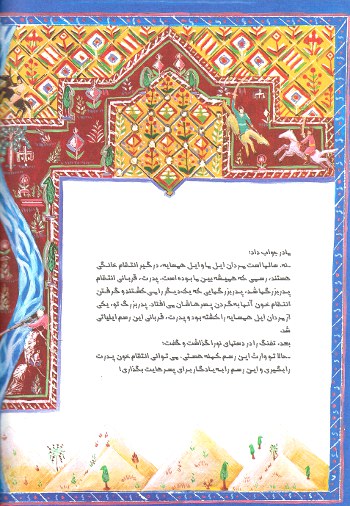 مادر جواب داد:
ـ نه. سالها است مردان ایل ما و ایل همسایه، درگیر انتقام خانگی
هستند، رسمی که همیشه بین ما بوده است. پدرت، قربانی انتقام
پدربزرگها شد. پدربزرگهایی که یکدیگر را می‌کشتند و گرفتن
انتقام خون آنها به گردن پسرهاشان می‌افتاد. پدربزرگ تو، یکی
از مردان ایل همسایه را کشته بود و پدرت، قربانی این رسم ایلیاتی
شد.
بعد، تفنگ را در دستهای نورا گذاشت و گفت:
ـ حالا تو وارث این رسم کهنه هستی. می‌توانی انتقام خون پدرت
را بگیری و این رسم را به یادگار برای پسرهایت بگذاری!